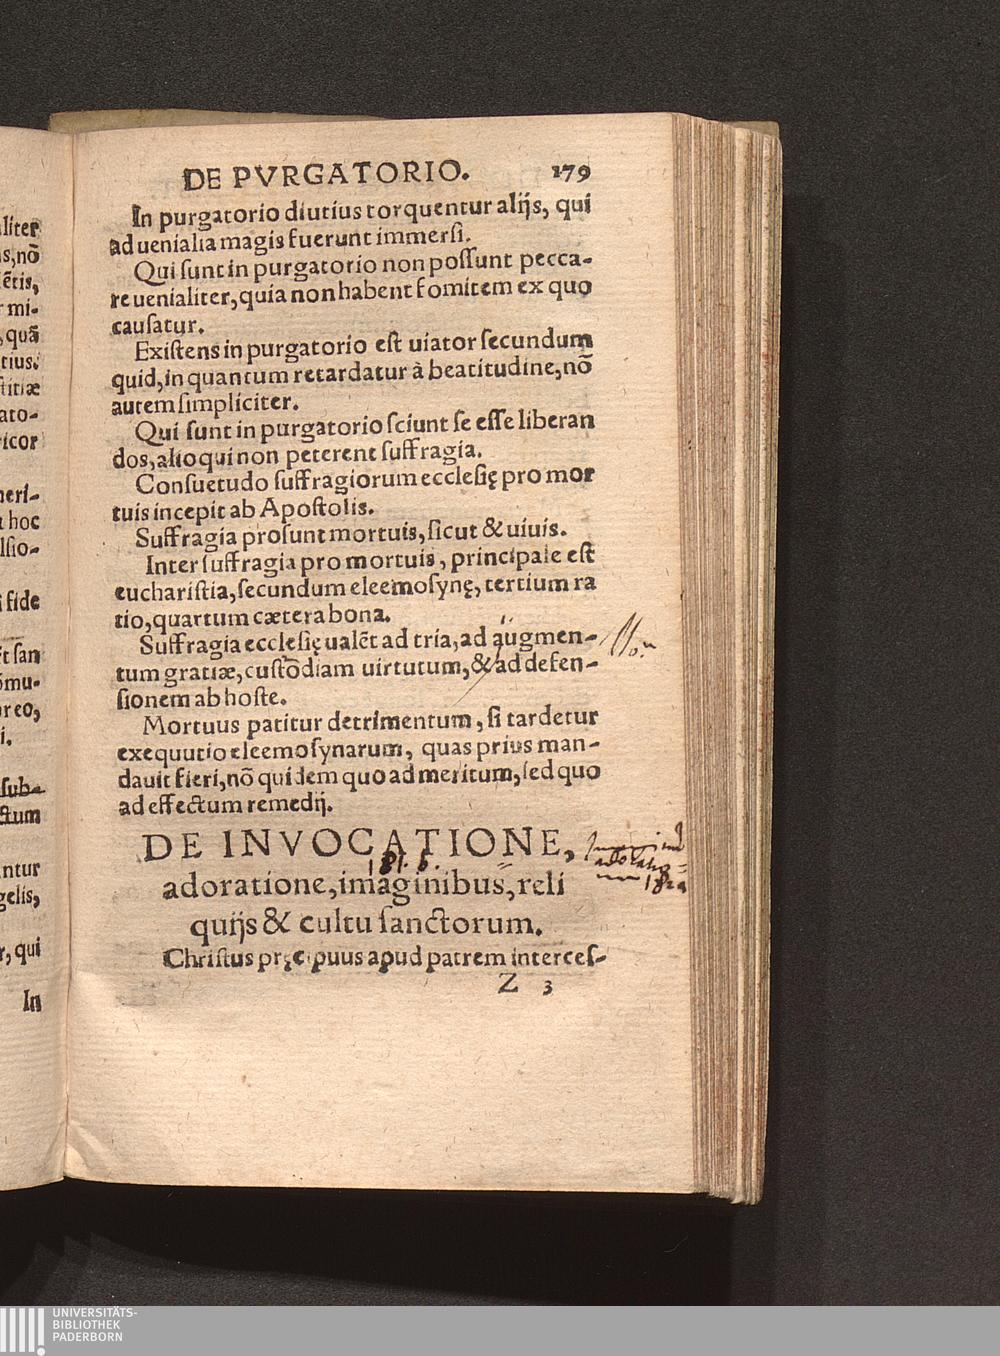 DE PVRGATORIO. 179
In purgatorio diutius torquentur alijs, qui
ad uenialia magis fuerunt immersi.
Qui sunt in purgatorio non possunt pecca-
re uenialiter, quia non habent fomitem ex quo
causatur.
Existens in purgatorio est uiator secundum
quid, in quantum retardatur à beatitudine, nō
autem simpliciter.
Qui sunt in purgatorio sciunt se esse liberan
dos, alioqui non peterent suffragia.
Consuetudo suffragiorum ecclesię pro mor
tuis incepit ab Apostolis.
Suffragia prosunt mortuis, sicut & uiuis.
Inter suffragia pro mortuis, principale est
eucharistia, secundum eleemosynę, tertium ra
tio, quartum cætera bona.
Suffragia ecclesię ualēt ad tria, ad augmen-
tum gratiæ, custodiam uirtutum, & ad defen-
sionem ab hoste.
Mortuus patitur detrimentum, si tardetur
exequutio eleemosynarum, quas prius man-
dauit fieri, nō quidem quo ad meritum, sed quo
ad effectum remedij.
DE INVOCATIONE,
181. b.
adoratione, imaginibus, reli
quijs & cultu sanctorum.
Christus pręcipuus apud patrem interces-
Z 3
aliter
s, nō
ētis,
r mi-
, quā
tius.
stitiæ
ato-
ricor
meri-
hoc
lsio-
fide
t san
ōmu-
or eo,
i.
sub-
ctum
ntur
gelis,
r, qui
In
UNIVERSITÄTS-
BIBLIOTHEK
PADERBORN